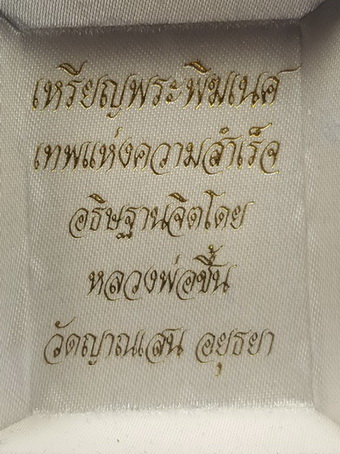 เหรียญพระพิฆเนศ
เทพแห่งความสำเร็จ
อธิษฐานจิตโดย
หลวงพ่อชื้น
วัดญาณเสน อยุธยา